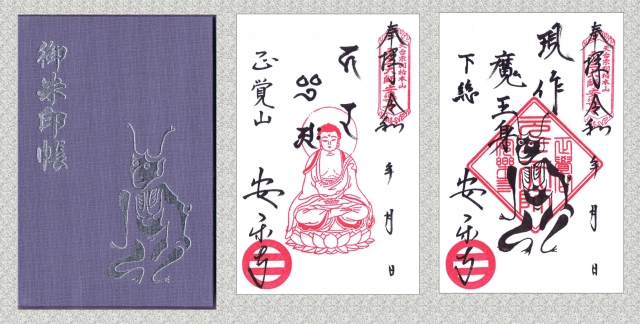 御朱印帳
奉拝令和
年 月 日
天台宗別格本山
正覚山
安楽寺
奉拝令和
年 月 日
天台宗別格本山
現作
魔王尊
下総
安楽寺